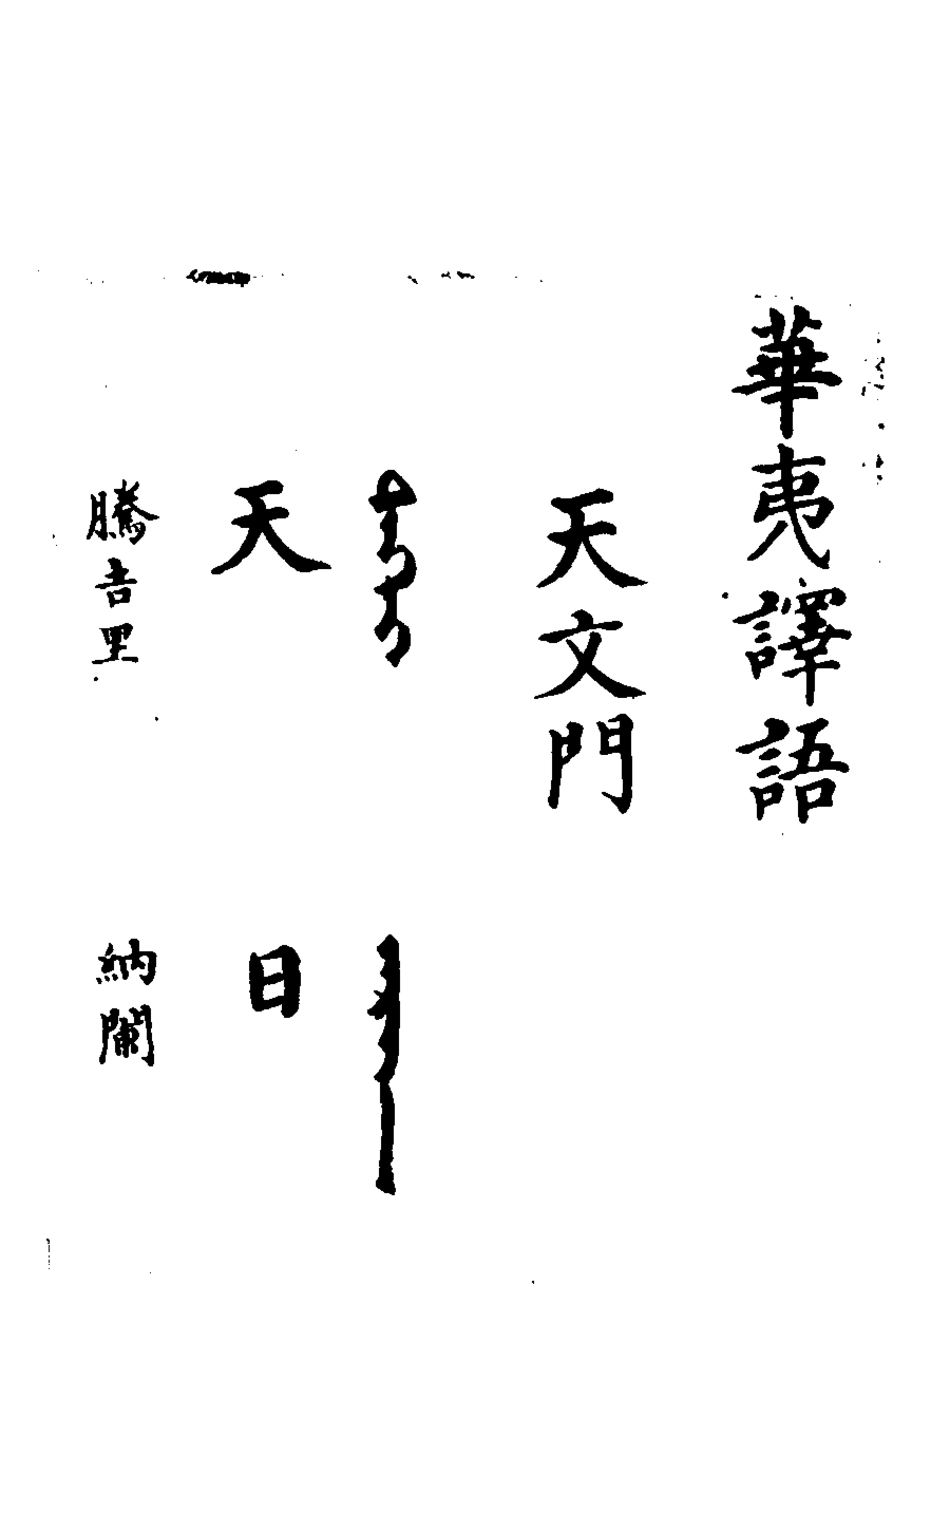 華夷譯語
天文門
ᠲᠩᠷᠢ ᠨᠠᠷᠠᠨ
天 日
騰吉里 納闌